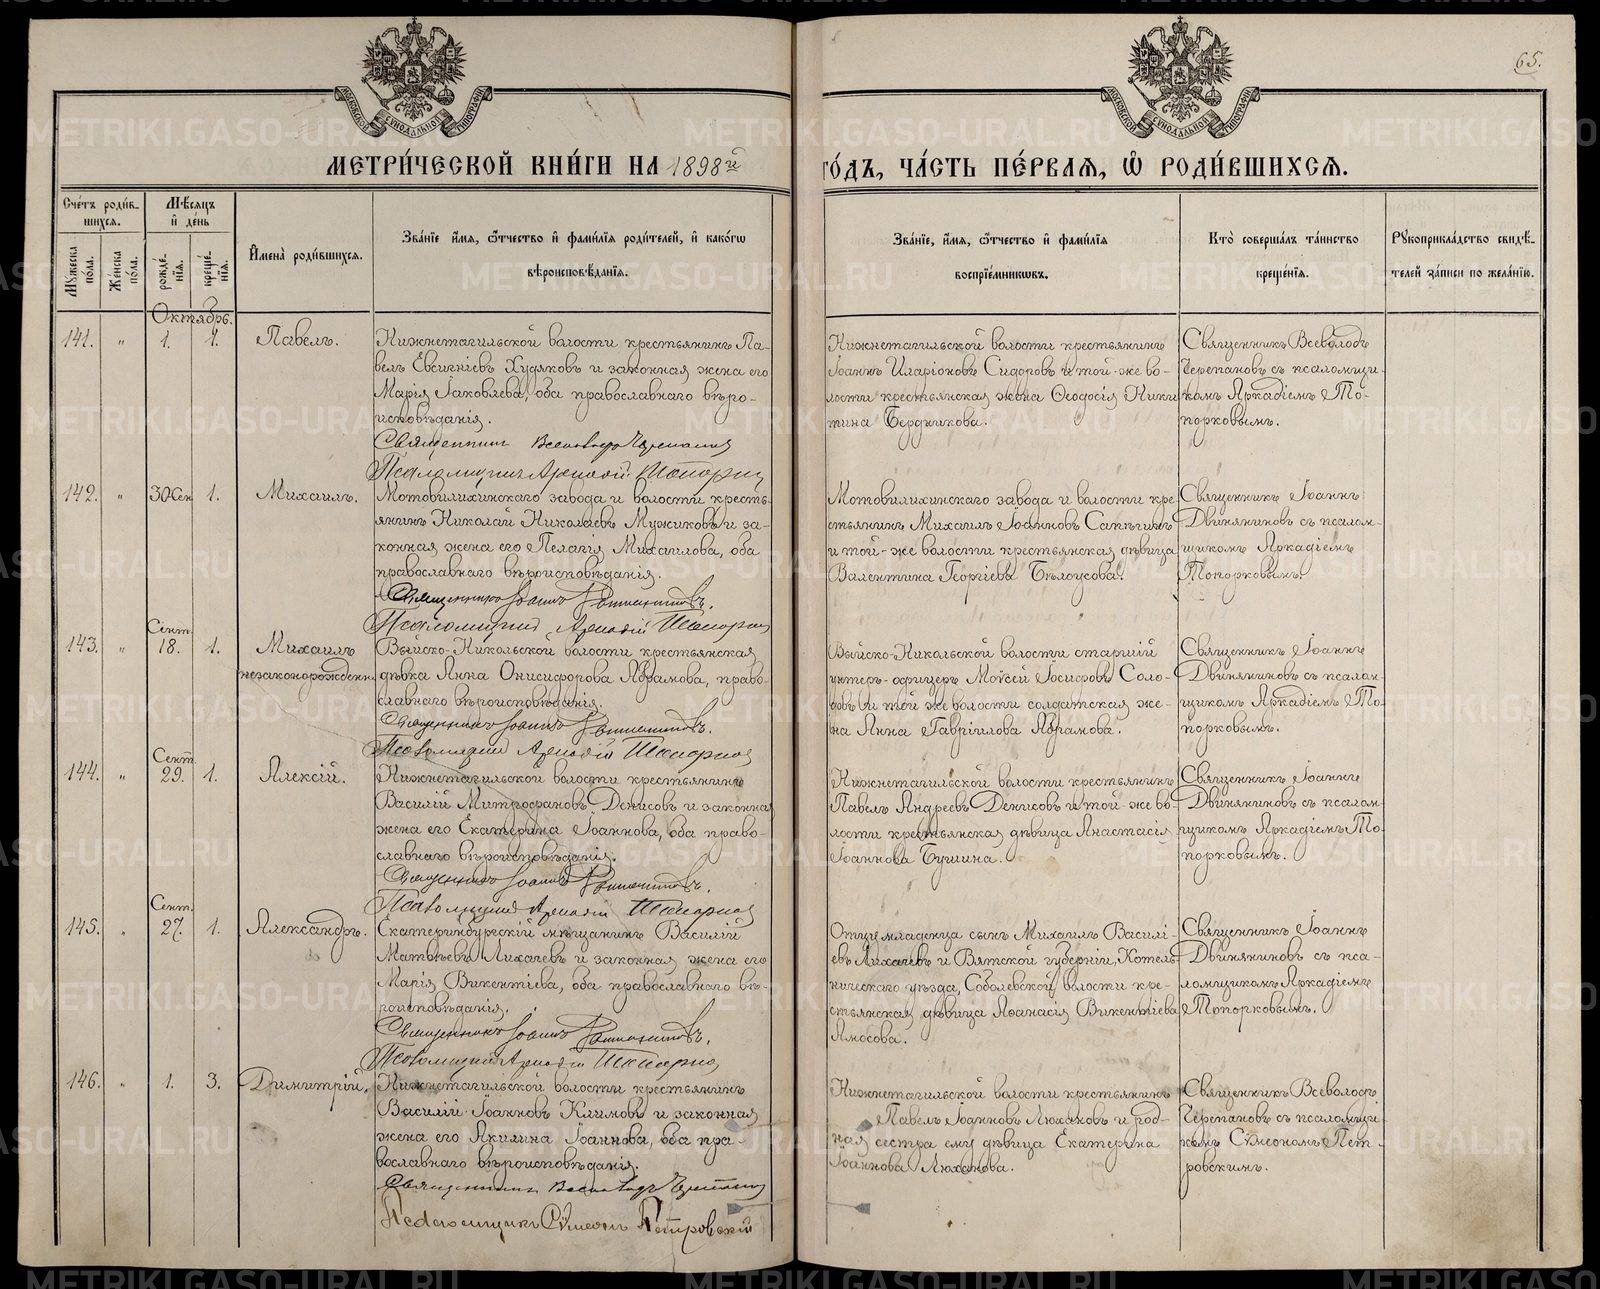 65.
МЕТРИ́ЧЕСКОЙ КНИ́ГИ НА 1898й
ГО́ДЪ, ЧА́СТЬ ПЕ́РВАЯ, Ѽ РОДИ́ВШИХСЯ.
Сче́тъ роди́в-
шихся.
Мѣ́сяцъ
и҆ де́нь
Мꙋ́жеска по́ла.
Же́нска по́ла.
рожде́нїѧ.
креще́нїѧ.
И҆мена̀ роди́вшихся.
Зва́нїе и҆́мѧ, ѻ҆́тчество и҆ фами́лїѧ роди́телей, и҆ како́гѡ
вѣроисповѣ́данїѧ.
Зва́нїе, и҆́мѧ, ѻ҆́тчество и҆ фами́лїѧ
воспрїе́мниковъ.
Кто̀ соверша́лъ та́инство
креще́нїѧ.
Рꙋкоприкла́дство свидѣ́-
телей за́писи по жела́нїю.
Октябрь.
141. " 1. 1. Павелъ.
Нижнетагильской волости крестьянинъ Па-
велъ Евсигніевъ Худяковъ и законная жена его
Марія Іаковлева, оба православнаго вѣро-
исповѣданія.
Священникъ Всеволодъ Черепановъ
Псаломщикъ Аркадій Топорковъ
Нижнетагильской волости крестьянинъ
Іоаннъ Иларіоновъ Сидоровъ и той-же во-
лости крестьянская жена Ѳеодосія Ники-
тина Бердникова.
Священникъ Всеволодъ
Черепановъ съ псаломщи-
комъ Аркадіемъ То-
порковымъ.
142. " 30 Сен. 1. Михаилъ.
Мотовилихинскаго завода и волости кресть-
янинъ Николай Николаевъ Мужиковъ и за-
конная жена его Пелагія Михаилова, оба
православнаго вѣроисповѣданія.
Священникъ Іоаннъ Двиняниновъ.
Псаломщикъ Аркадій Топорковъ
Мотовилихинскаго завода и волости кре-
стьянинъ Михаилъ Іоанновъ Сапѣгинъ
и той-же волости крестьянская дѣвица
Валентина Георгіева Бѣлоусова.
Священникъ Іоаннъ
Двиняниновъ съ псалом-
щикомъ Аркадіемъ
Топорковымъ.
143. " Сент. 18. 1. Михаилъ
незаконорожденн.
Выйско-Никольской волости крестьянская
дѣвка Анна Онисифорова Абрамова, право-
славнаго вѣроисповѣданія.
Священникъ Іоаннъ Двиняниновъ.
Псаломщикъ Аркадій Топорковъ
Выйско-Никольской волости старшій
унтеръ-офицеръ Моѵсей Іосифовъ Соло-
довъ и той же волости солдатская же-
на Анна Гавріилова Абрамова.
Священникъ Іоаннъ
Двиняниновъ съ псалом-
щикомъ Аркадіемъ То-
порковымъ.
144. " Сент. 29. 1. Алексій.
Нижнетагильской волости крестьянинъ
Василій Митрофановъ Денисовъ и законная
жена его Екатерина Іоаннова, оба право-
славнаго вѣроисповѣданія.
Священникъ Іоаннъ Двиняниновъ.
Псаломщикъ Аркадій Топорковъ
Нижнетагильской волости крестьянинъ
Павелъ Андреевъ Денисовъ и той-же во-
лости крестьянская дѣвица Анастасія
Іоаннова Бушина.
Священникъ Іоаннъ
Двиняниновъ съ псалом-
щикомъ Аркадіемъ То-
порковымъ.
145. " Сент. 27. 1. Александръ.
Екатеринбургскій мѣщанинъ Василій
Матѳьевъ Лихачевъ и законная жена его
Марія Викентіева, оба православнаго вѣ-
роисповѣданія.
Священникъ Іоаннъ Двиняниновъ.
Псаломщикъ Аркадій Топорковъ
Отцу младенца сынъ Михаилъ Василі-
евъ Лихачевъ и Вятской губерніи, Котель-
ническаго уѣзда, Соболевской волости кре-
стьянская дѣвица Аѳанасія Викентіева
Амосова.
Священникъ Іоаннъ
Двиняниновъ съ пса-
ломщикомъ Аркадіемъ
Топорковымъ.
146. " 1. 3. Димитрій.
Нижнетагильской волости крестьянинъ
Василій Іоанновъ Климовъ и законная
жена его Акилина Іоаннова, оба пра-
вославнаго вѣроисповѣданія.
Священникъ Всеволодъ Черепановъ
Псаломщикъ Сѵмеонъ Петровскій
Нижнетагильской волости крестьянинъ
Павелъ Іоанновъ Люхановъ и род-
ная сестра ему дѣвица Екатерина
Іоаннова Люханова.
Священникъ Всеволодъ
Черепановъ съ псаломщи-
комъ Сѵмеономъ Пет-
ровскимъ.
METRIKI.GASO-URAL.RU